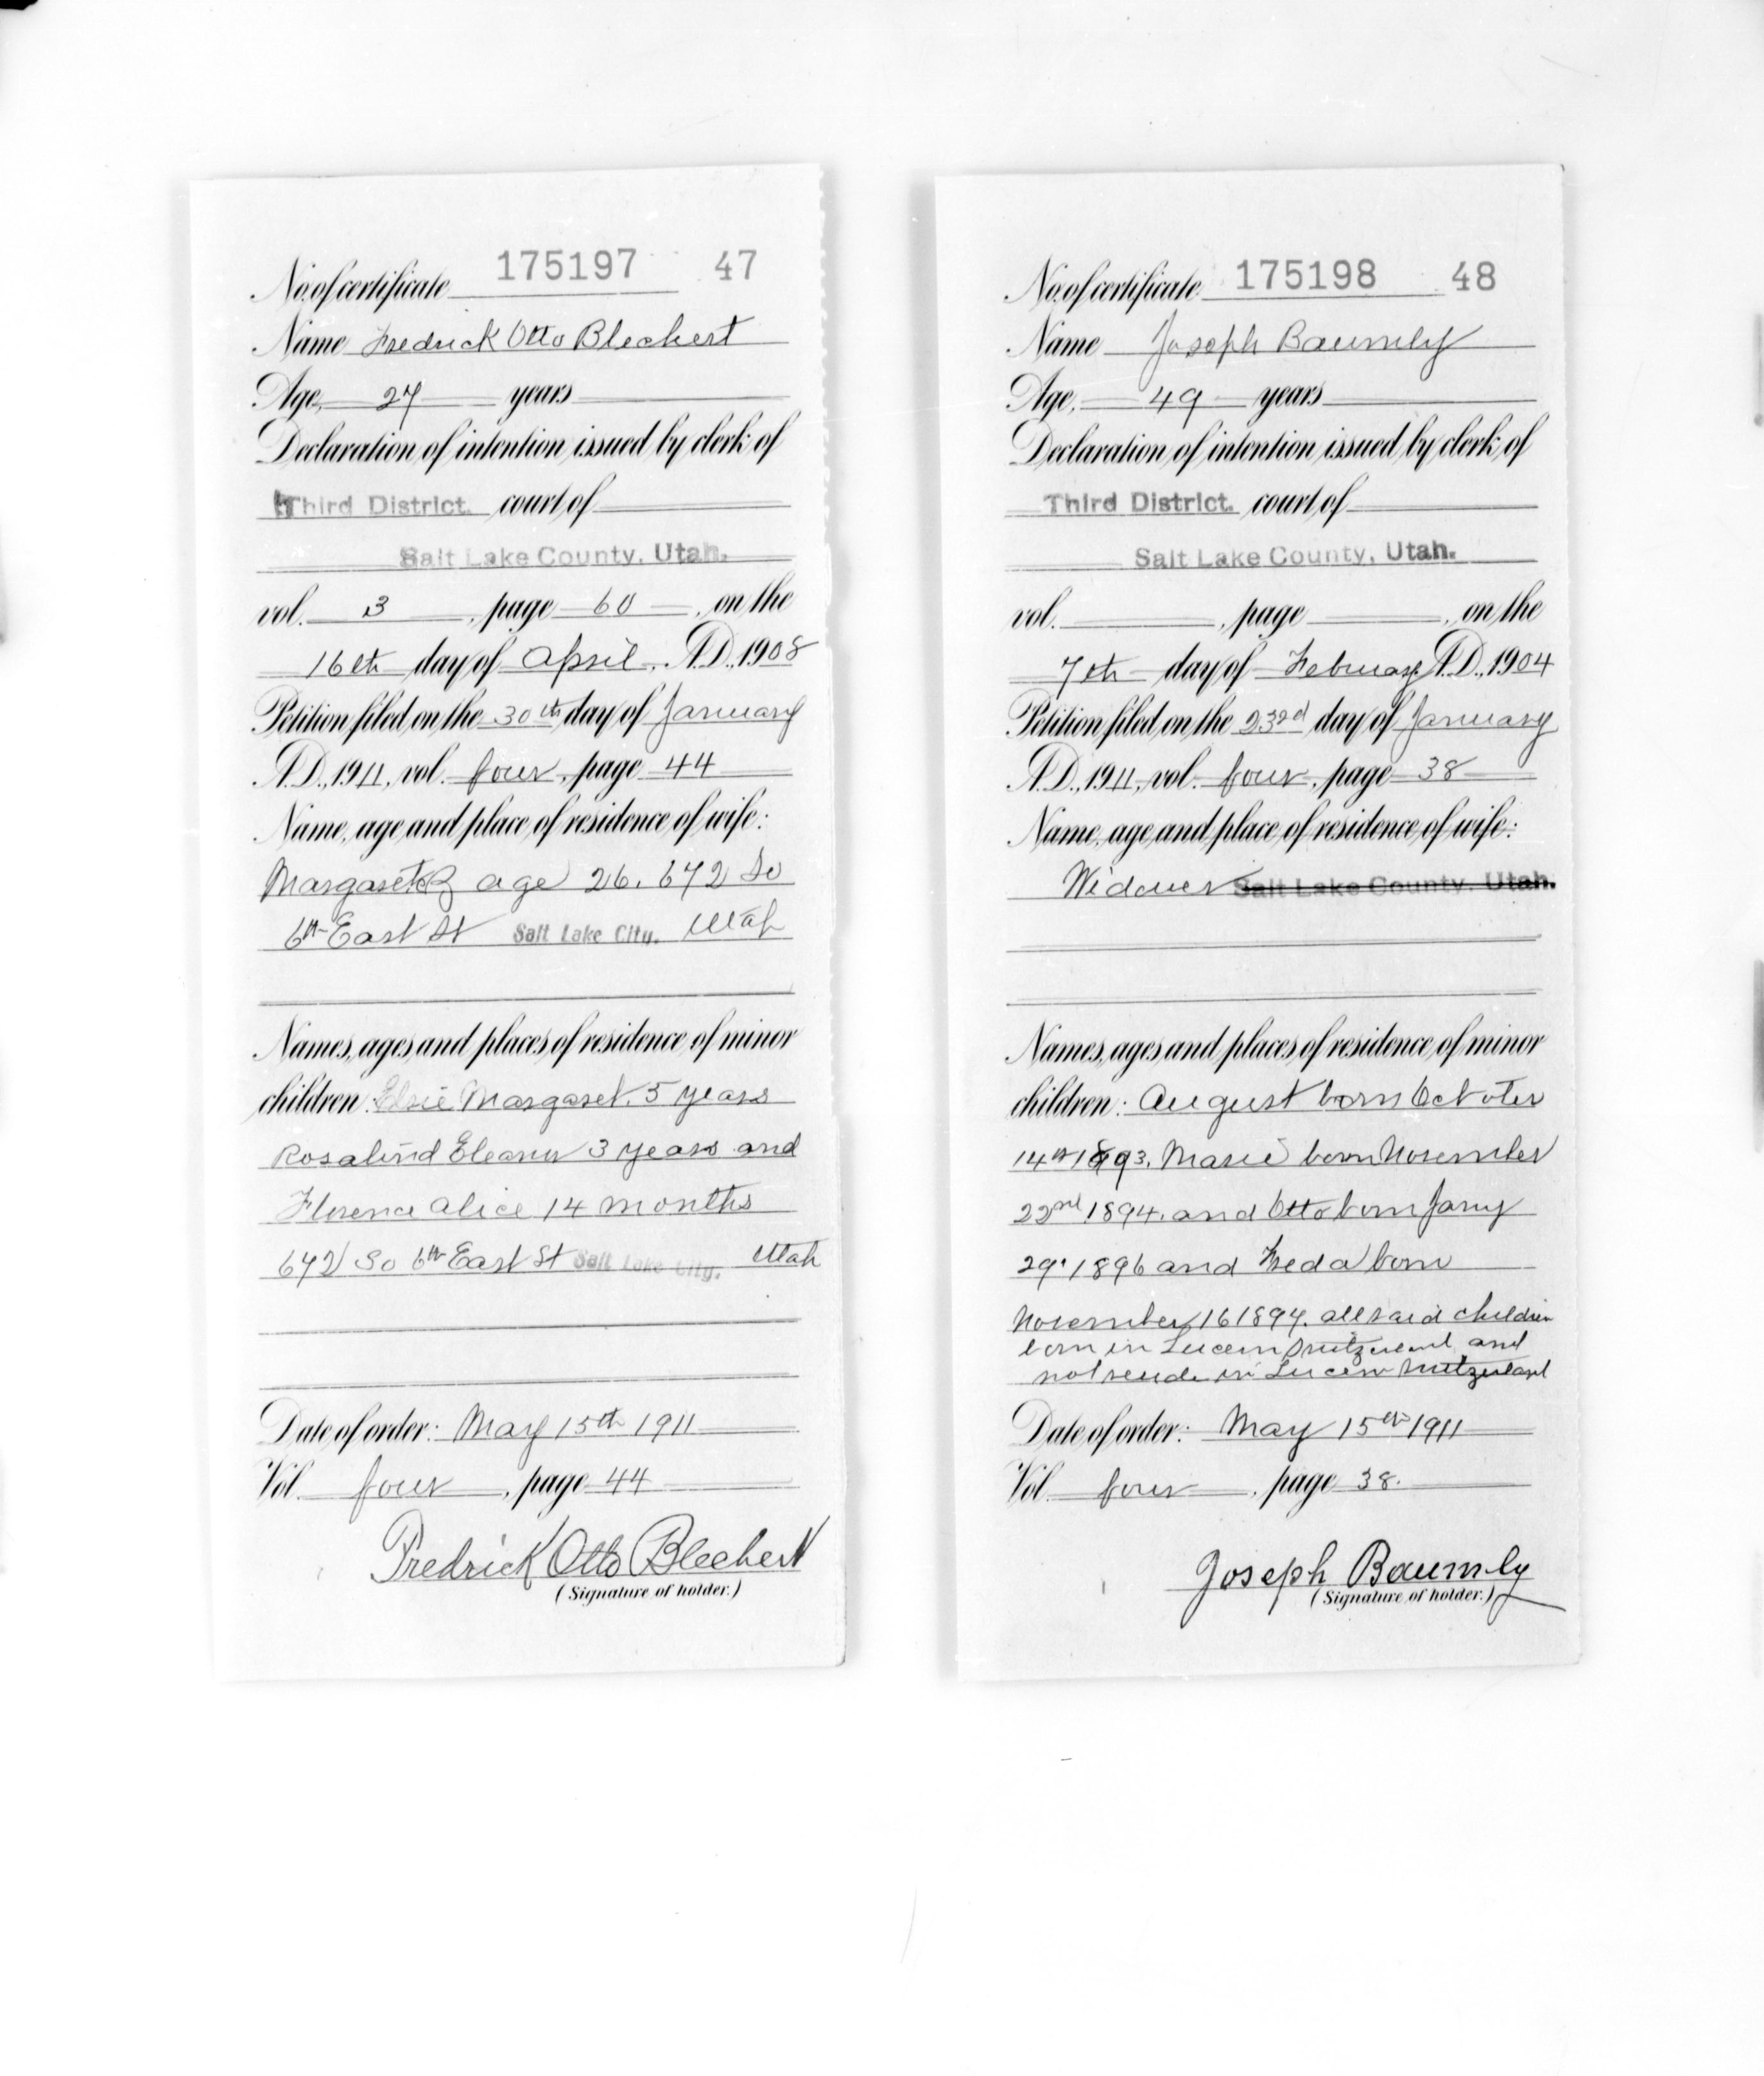 No. of certificate 175197 47
Name Fredrick Otto Blechert
Age, 27 years
Declaration of intention issued by clerk of
Third District. court of
Salt Lake County, Utah.
vol. 3, page 60, on the
16th day of April, A.D., 1908
Petition filed on the 30th day of January
A.D., 1911, vol. four, page 44
Name, age and place of residence of wife:
age 26. 672 So
6th East St Salt Lake City. Utah
Names, ages and places of residence of minor
children: Elsie Margaret. 5 years
Rosalind Eleanor 3 years and
Florence Alice 14 months
672 So 6th East St Salt Lake City. Utah
Date of order: May 15th 1911
Vol. four, page 44
Fredrick Otto Blechert
(Signature of holder.)
No. of certificate 175198 48
Name Joseph Baumly
Age, 49 years
Declaration of intention issued by clerk of
Third District. court of
Salt Lake County, Utah.
vol. , page , on the
7th day of February A.D., 1904
Petition filed on the 23rd day of January
A.D., 1911, vol. four, page 38
Name, age and place of residence of wife:
Widower Salt Lake County, Utah.
Names, ages and places of residence of minor
children: August born October
14th 1893. Marie born November
22nd 1894. and Otto born Jany
29" 1896 and Freda born
November 16 1897. all said children
born in Lucern Switzerland and
in Lucern Switzerland
Date of order: May 15th 1911
Vol. four, page 38.
Joseph Baumly
(Signature of holder.)